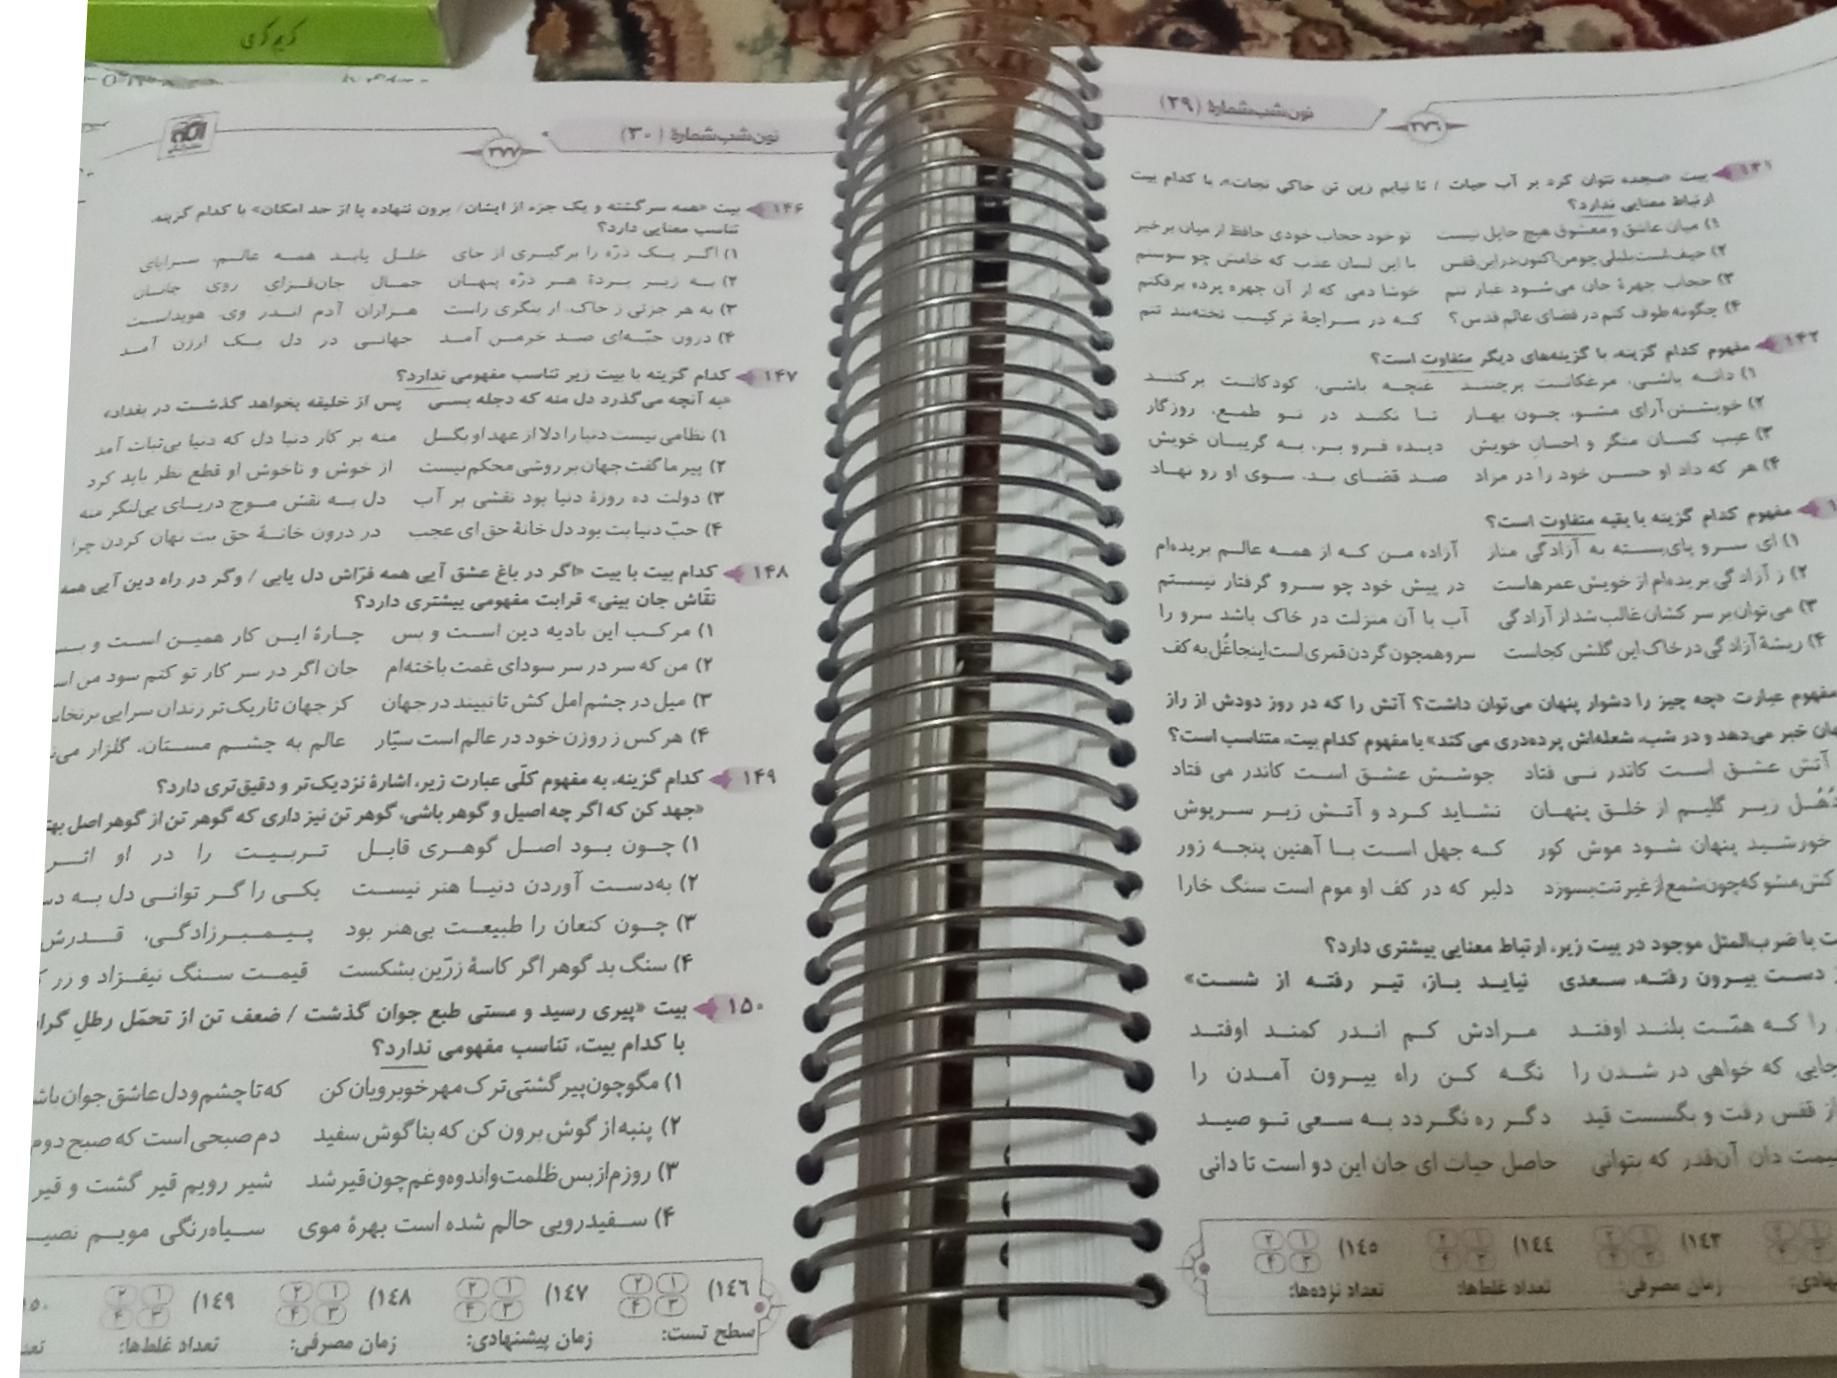 کریم کری
نون‌شب شمارهٔ (۲۹)
۳۷۶
۱۴۱ بیت «سجده نتوان کرد بر آب حیات / تا نیابم زین تن خاکی نجات»، با کدام بیت
ارتباط معنایی ندارد؟
۱) میان عاشق و معشوق هیچ حایل نیست تو خود حجاب خودی حافظ از میان برخیز
۲) حیف است بلبلی چو من اکنون در این قفس با این لسان عذب که خامش چو سوسنم
۳) حجاب چهرهٔ جان می‌شود غبار تنم خوشا دمی که از آن چهره پرده برفکنم
۴) چگونه طوف کنم در فضای عالم قدس؟ که در سراچهٔ ترکیب تخته‌بند تنم
۱۴۲ مفهوم کدام گزینه، با گزینه‌های دیگر متفاوت است؟
۱) دانه باشی، مرغکانت برچنند غنچه باشی، کودکانت برکنند
۲) خویشتن‌آرای مشو، چون بهار تا نکند در تو طمع، روزگار
۳) عیب کسان منگر و احسان خویش دیده فرو بر، به گریبان خویش
۴) هر که داد او حسن خود را در مزاد صد قضای بد، سوی او رو نهاد
مفهوم کدام گزینه با بقیه متفاوت است؟
۱) ای سرو پای‌بسته به آزادگی مناز آزاده من که از همه عالم بریده‌ام
۲) ز آزادگی بریده‌ام از خویش عمرهاست در پیش خود چو سرو گرفتار نیستم
۳) می‌توان بر سرکشان غالب شد از آزادگی آب با آن منزلت در خاک باشد سرو را
۴) ریشهٔ آزادگی در خاک این گلشن کجاست سرو همچون گردن قمری است اینجا غُل به کف
مفهوم عبارت «چه چیز را دشوار پنهان می‌توان داشت؟ آتش را که در روز دودش از راز
خبر می‌دهد و در شب، شعله‌اش پرده‌دری می‌کند» با مفهوم کدام بیت، متناسب است؟
آتش عشق است کاندر نی فتاد جوشش عشق است کاندر می فتاد
دُهُل زیر گلیم از خلق پنهان نشاید کرد و آتش زیر سرپوش
خورشید پنهان شود موش کور که جهل است با آهنین پنجه زور
کش مشو که چون شمع از غیرتت بسوزد دلبر که در کف او موم است سنگ خارا
با ضرب‌المثل موجود در بیت زیر، ارتباط معنایی بیشتری دارد؟
دست بیرون رفته، سعدی نیاید باز، تیر رفته از شست»
را که همّت بلند اوفتد مرادش کم اندر کمند اوفتد
جایی که خواهی در شدن را نگه کن راه بیرون آمدن را
از قفس رفت و بگسست قید دگر ره نگردد به سعی تو صید
دان آن‌قدر که بتوانی حاصل حیات ای جان این دو است تا دانی
۱ ۲ ۳ ۴ (۱۴۳ ۱ ۲ ۳ ۴ (۱۴۴ ۱ ۲ ۳ ۴ (۱۴۵ ۱ ۲ ۳ ۴
زمان مصرفی: تعداد غلط‌ها: تعداد نزده‌ها:
نون‌شب شمارهٔ (۳۰)
۳۷۷
۱۴۶ بیت «همه سرگشته و یک جزء از ایشان / برون ننهاده پا از حد امکان» با کدام گزینه،
تناسب معنایی دارد؟
۱) اگر یک ذرّه را برگیری از جای خلل یابد همه عالم، سراپای
۲) به زیر پردهٔ هر ذرّه پنهان جمال جان‌فزای روی جانان
۳) به هر جزئی ز خاک، ار بنگری راست هزاران آدم اندر وی هویداست
۴) درون حبّه‌ای صد خرمن آمد جهانی در دل یک ارزن آمد
۱۴۷ کدام گزینه با بیت زیر تناسب مفهومی ندارد؟
«به آنچه می‌گذرد دل منه که دجله بسی پس از خلیفه بخواهد گذشت در بغداد»
۱) نظامی نیست دنیا را دلا از عهد او بگسل منه بر کار دنیا دل که دنیا بی‌ثبات آمد
۲) پیر ما گفت جهان بر روشی محکم نیست از خوش و ناخوش او قطع نظر باید کرد
۳) دولت ده روزهٔ دنیا بود نقشی بر آب دل به نقش موج دریای بی‌لنگر منه
۴) حبّ دنیا بت بود دل خانهٔ حق ای عجب در درون خانهٔ حق بت نهان کردن چرا
۱۴۸ کدام بیت با بیت «اگر در باغ عشق آیی همه فرّاش دل یابی / وگر در راه دین آیی همه
نقّاش جان بینی» قرابت مفهومی بیشتری دارد؟
۱) مرکب این بادیه دین است و بس چارهٔ این کار همین است و بس
۲) من که سر در سر سودای غمت باخته‌ام جان اگر در سر کار تو کنم سود من
۳) میل در چشم امل کش تا نبیند در جهان کز جهان تاریک‌تر زندان سرایی
۴) هر کس ز روزن خود در عالم است سیّار عالم به چشم مستان، گلزار
۱۴۹ کدام گزینه، به مفهوم کلّی عبارت زیر، اشارهٔ نزدیک‌تر و دقیق‌تری دارد؟
«جهد کن که اگر چه اصیل و گوهر باشی، گوهر تن نیز داری که گوهر تن از گوهر اصل
۱) چون بود اصل گوهری قابل تربیت را در او
۲) به‌دست آوردن دنیا هنر نیست یکی را گر توانی دل به
۳) چون کنعان را طبیعت بی‌هنر بود پیمبرزادگی، قدرش
۴) سنگ بد گوهر اگر کاسهٔ زرّین بشکست قیمت سنگ نیفزاد و زر
۱۵۰ بیت «پیری رسید و مستی طبع جوان گذشت / ضعف تن از تحمّل رطل
با کدام بیت، تناسب مفهومی ندارد؟
۱) مگو چون پیر گشتی ترک مهر خوبرویان کن که تا چشم و دل عاشق جوان
۲) پنبه از گوش برون کن که بناگوش سفید دم صبحی است که صبح دوم
۳) روزم از بس ظلمت و اندوه و غم چون قیر شد شیر رویم قیر گشت و قیر
۴) سفیدرویی حالم شده است بهرهٔ موی سیاه‌رنگی مویم
(۱۴۶ ۱ ۲ ۳ ۴ (۱۴۷ ۱ ۲ ۳ ۴ (۱۴۸ ۱ ۲ ۳ ۴ (۱۴۹ ۱ ۲ ۳ ۴
سطح تست: زمان پیشنهادی: زمان مصرفی: تعداد غلط‌ها: